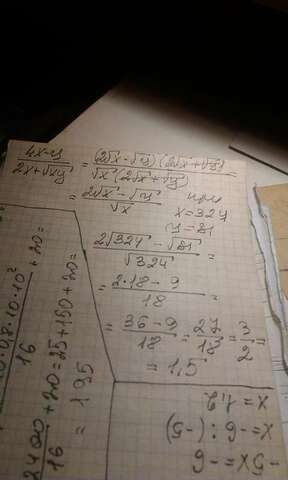 (4x-y)/(2x+√xy) = ((2√x-√y)(2√x+√y))/(√x(2√x+√y))
= (2√x-√y)/√x при
x=324
y=81
(2√324-√81)/√324 =
= (2·18-9)/18 =
= (36-9)/18 = 27/18 = 3/2 =
= 1,5
16 + 20 =
2400/16 + 20 = 25+150+20 =
= 195
-5x=-6
x=-6:(-5)
x=1,2